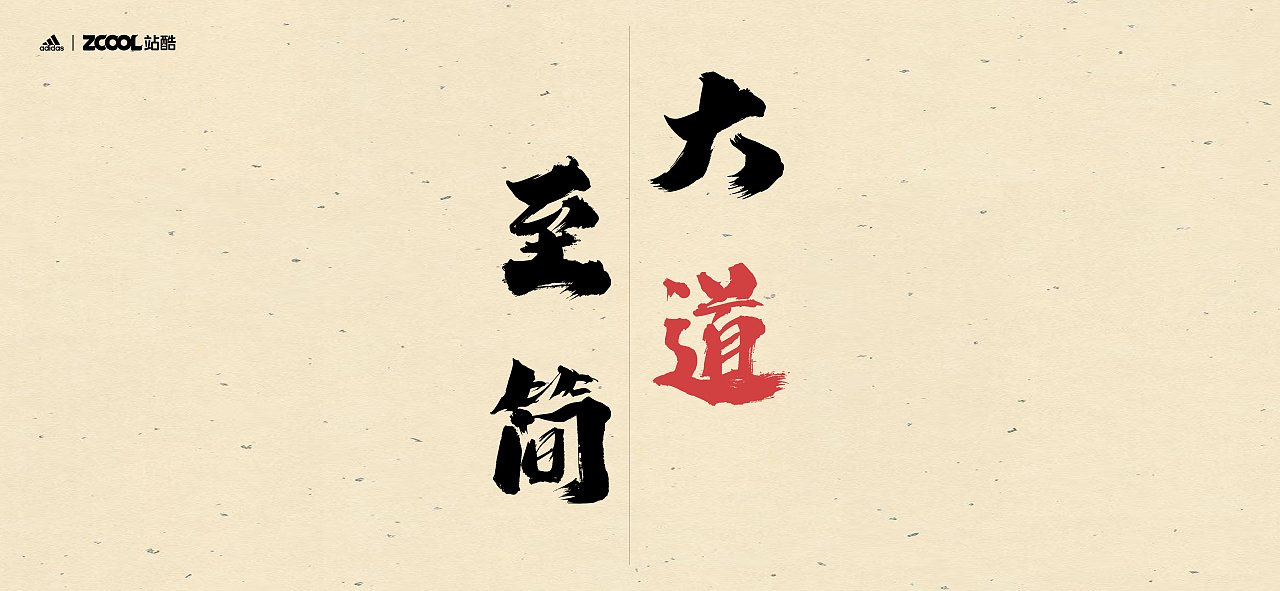 adidas | ZCOOL 站酷
大道
至简